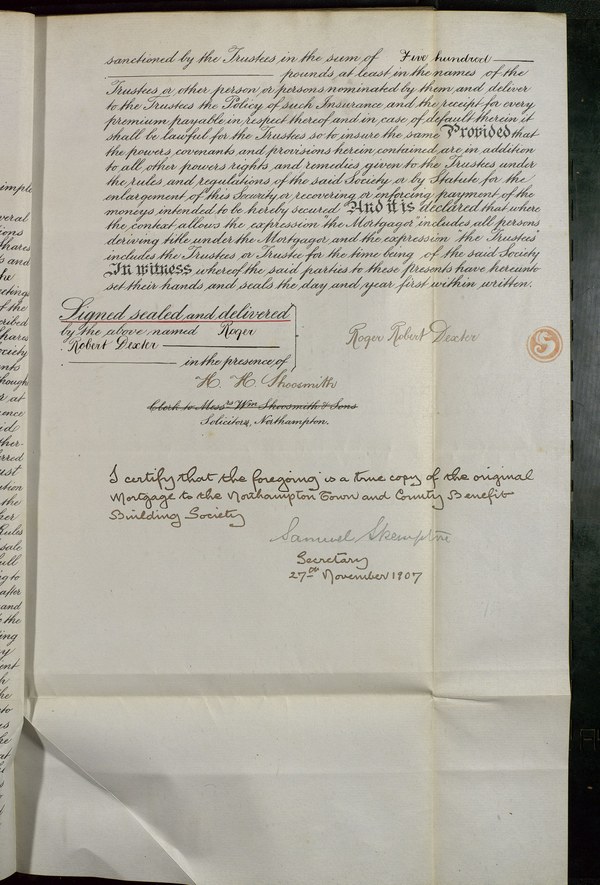 sanctioned by the Trustees in the sum of Five hundred
pounds at least in the names of the
Trustees or other person or persons nominated by them and deliver
to the Trustees the Policy of such Insurance and the receipt for every
premium payable in respect thereof and in case of default therein it
shall be lawful for the Trustees so to insure the same Provided that
the powers covenants and provisions herein contained are in addition
to all other powers rights and remedies given to the Trustees under
the rules and regulations of the said Society or by Statute for the
enlargement of this Security or recovering or enforcing payment of the
moneys intended to be hereby secured And it is declared that where
the context allows the expression "the Mortgagor" includes all persons
deriving title under the Mortgagor and the expression "the Trustees"
includes the Trustees or Trustee for the time being of the said Society
In witness whereof the said parties to these presents have hereunto
set their hands and seals the day and year first within written.
Signed sealed and delivered
by the above named Roger
Robert Dexter
in the presence of
Roger Robert Dexter
S
H. H. Shoosmith
Clerk to Messrs Wm Shoosmith & Sons
Solicitors, Northampton.
I certify that the foregoing is a true copy of the original
Mortgage to the Northampton Town and County Benefit
Building Society
Samuel Skempton
Secretary
27th November 1907